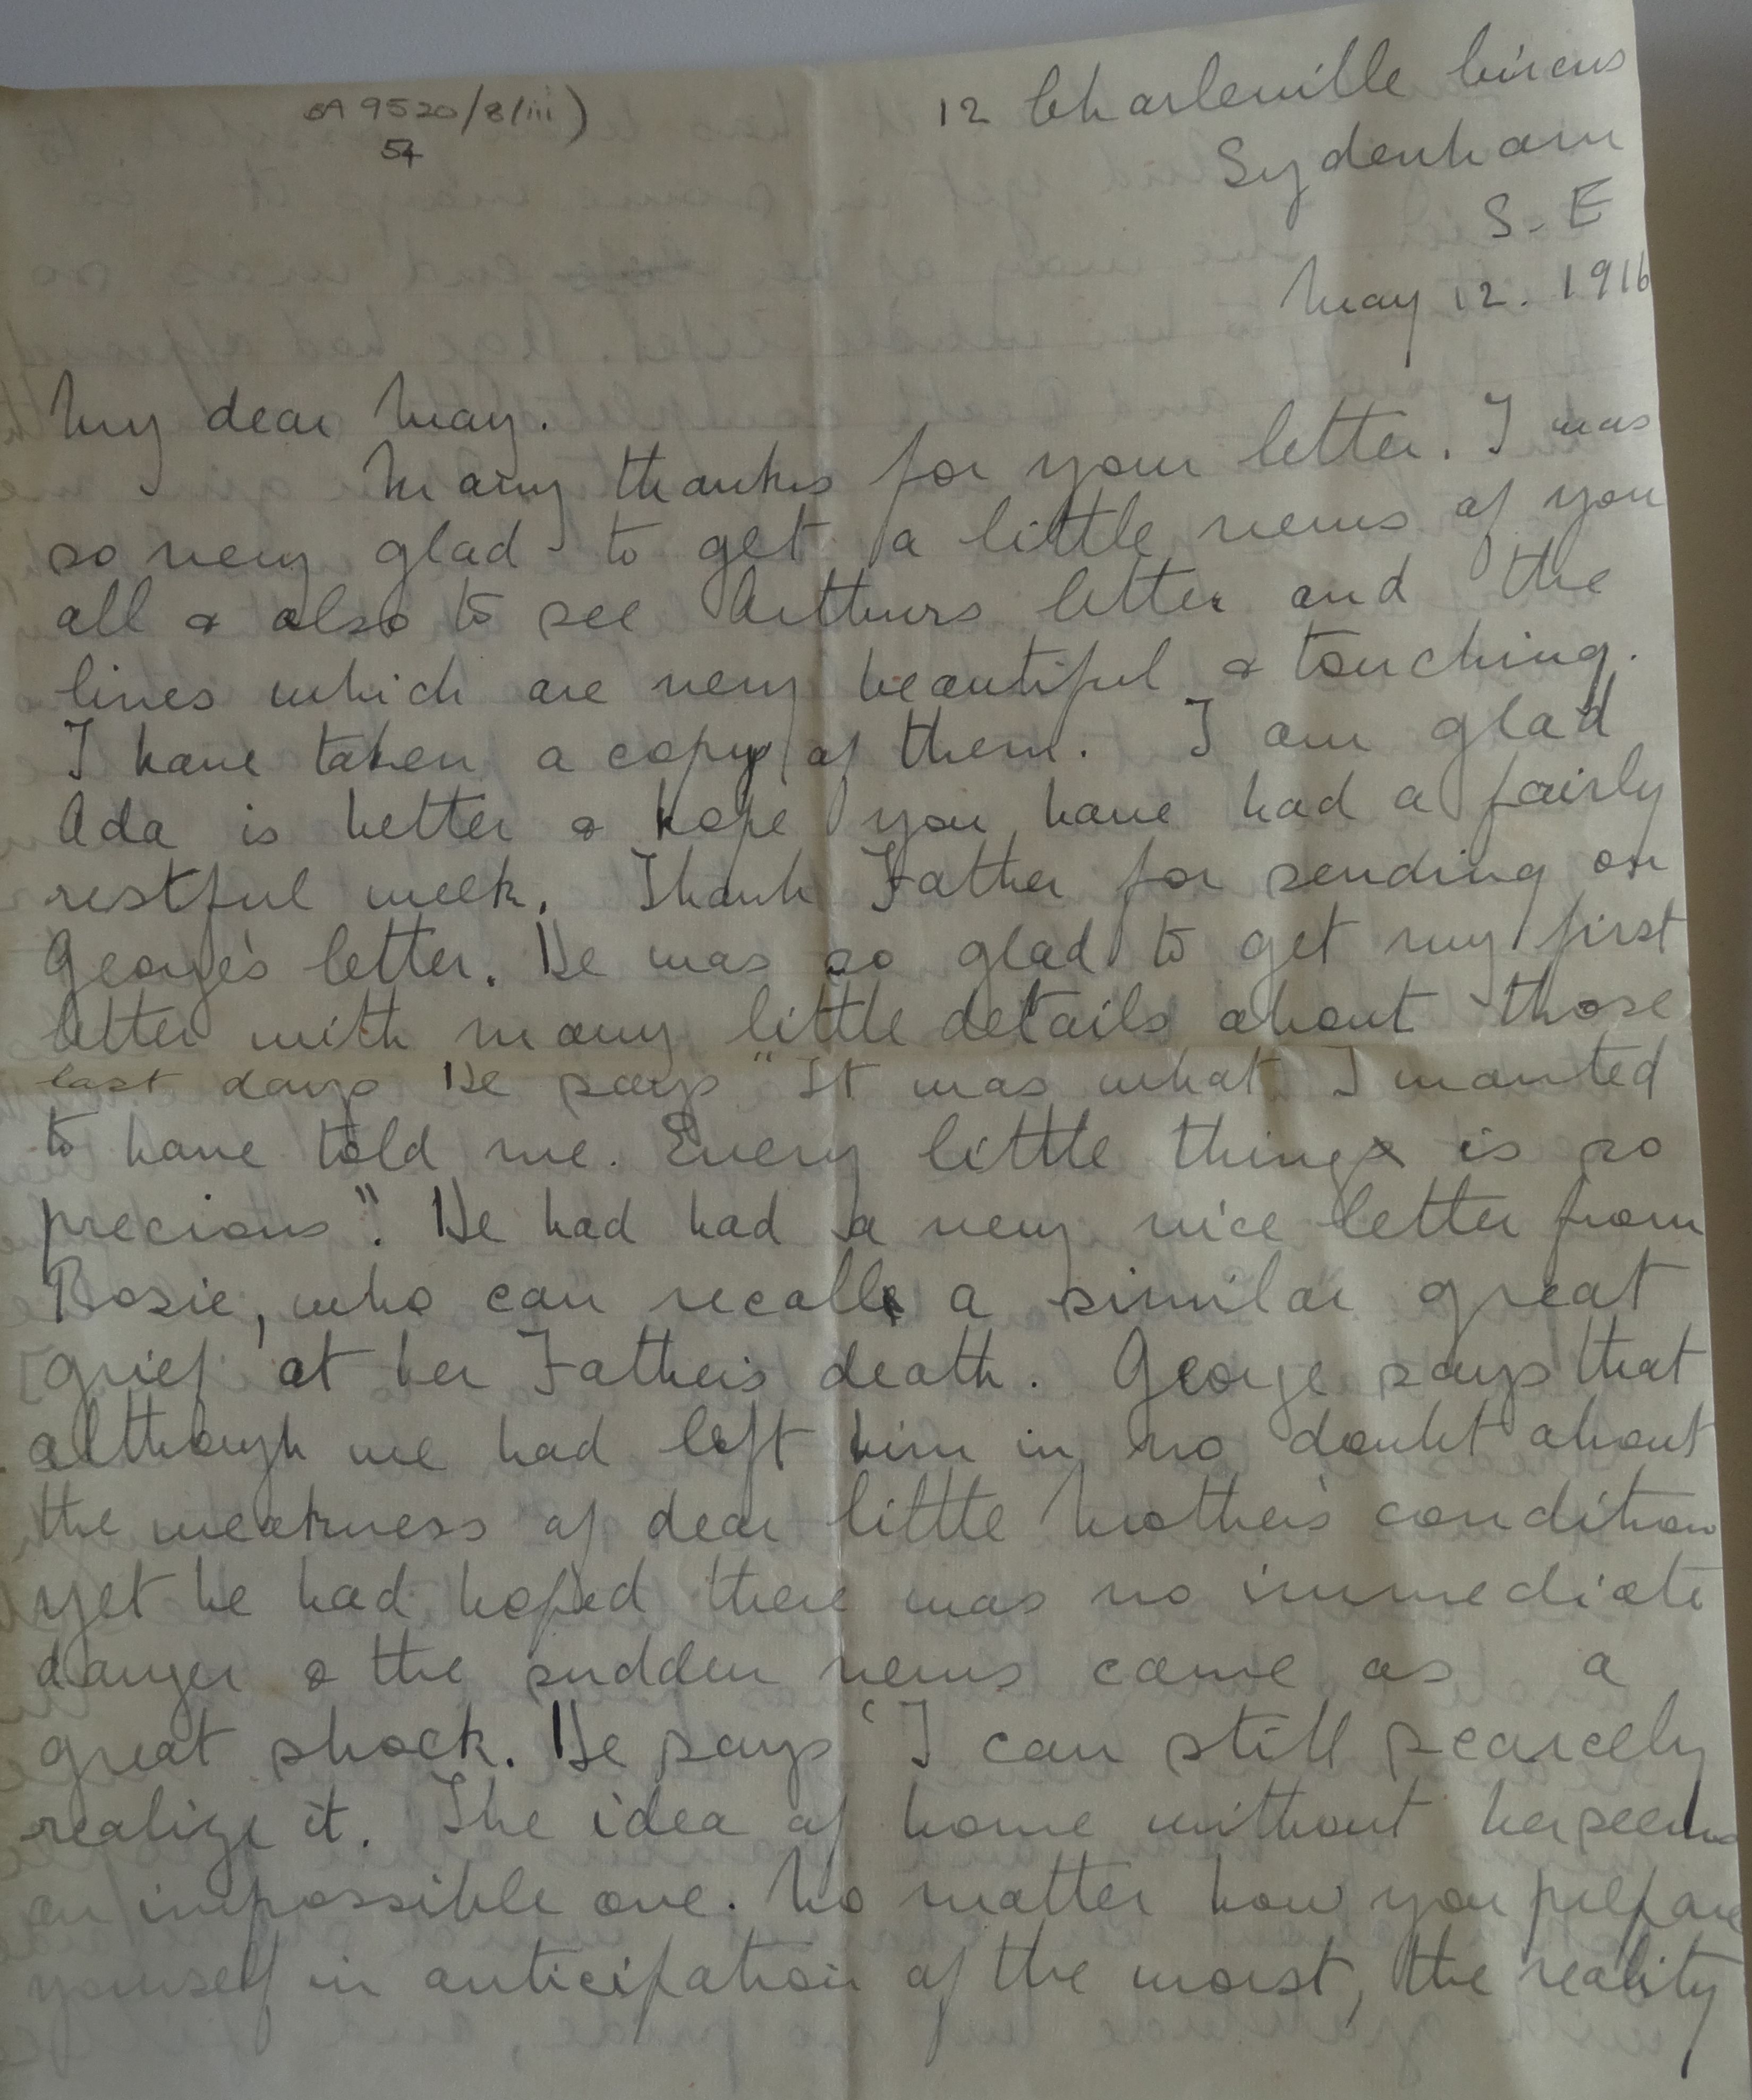 BA 9520/8(iii)
54
12 Charleville Circus
Sydenham
S. E
May 12. 1916
My dear May.
Many thanks for your letter. I was
so very glad to get a little news of you
all & also to see Arthurs letter and the
lines which are very beautiful & touching.
I have taken a copy of them. I am glad
Ada is better & hope you have had a fairly
restful week. Thank Father for sending on
George's letter. He was so glad to get my first
letter with many little details about those
last days He says "It was what I wanted
to have told me. Every little thing is so
precious". He had had a very nice letter from
Rosie, who can recall a similar great
grief at her Father's death. George says that
although we had left him in no doubt about
the weakness of dear little Mother's condition
yet he had hoped there was no immediate
danger & the sudden news came as a
great shock. He says 'I can still scarcely
realize it. The idea of home without her seems
an impossible one. No matter how you prepare
yourself in anticipation of the worst, the reality